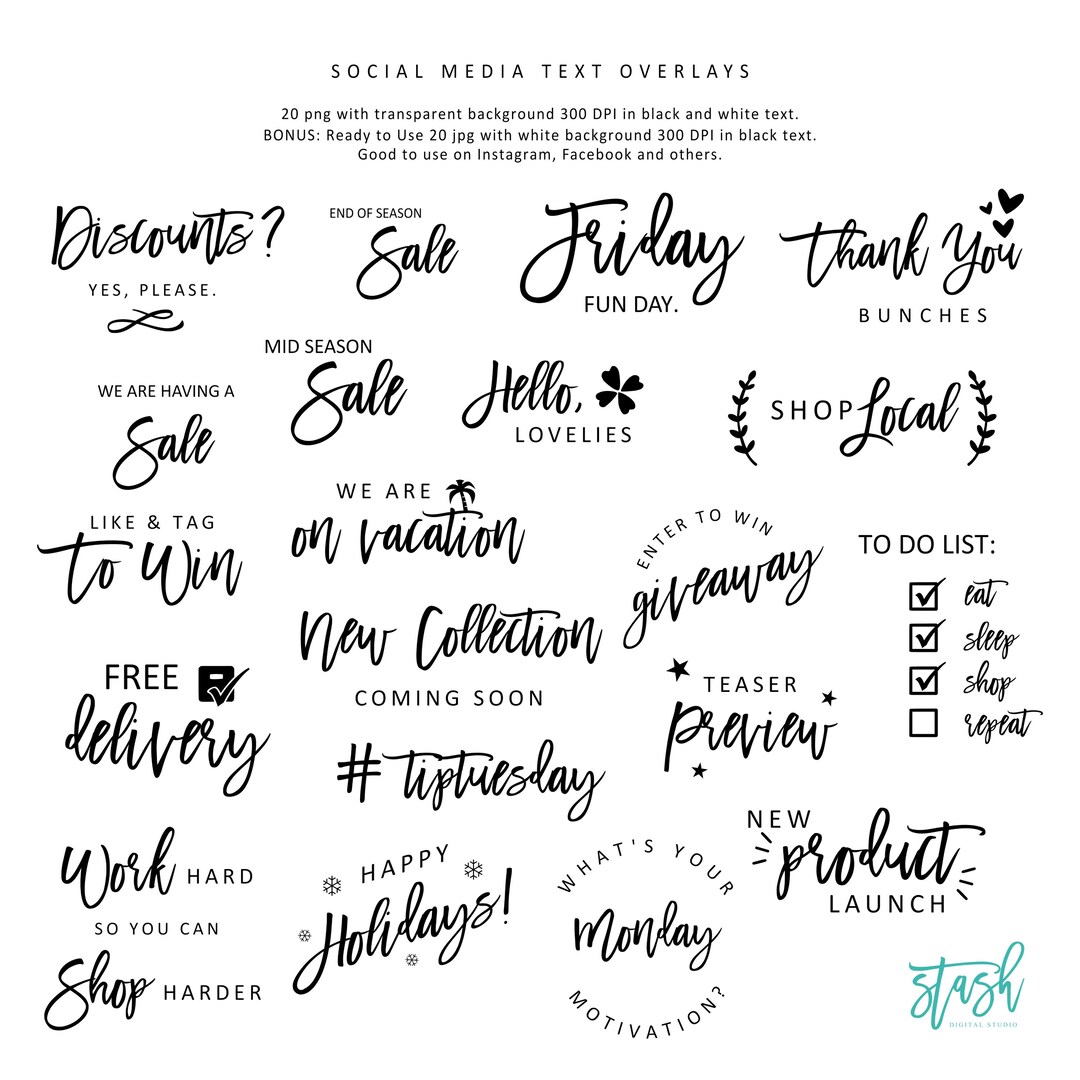 SOCIAL MEDIA TEXT OVERLAYS
20 png with transparent background 300 DPI in black and white text.
BONUS: Ready to Use 20 jpg with white background 300 DPI in black text.
Good to use on Instagram, Facebook and others.
Discounts?
YES, PLEASE.
END OF SEASON
Sale
Friday
FUN DAY.
Thank You
BUNCHES
WE ARE HAVING A
Sale
MID SEASON
Sale
Hello,
LOVELIES
SHOP Local
LIKE & TAG
to Win
WE ARE
on vacation
ENTER TO WIN
giveaway
TO DO LIST:
eat
sleep
shop
repeat
New Collection
COMING SOON
FREE
delivery
TEASER
preview
#tiptuesday
NEW
product
LAUNCH
Work HARD
SO YOU CAN
Shop HARDER
HAPPY
Holidays!
WHAT'S YOUR
Monday
MOTIVATION?
stash
DIGITAL STUDIO